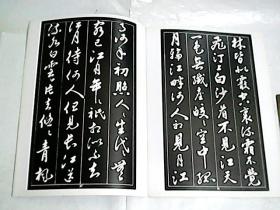 林皆似霰空裏流霜不覺
飛汀上白沙看不見江天
一色無纖塵皎皎空中孤
月輪江畔何人初見月江
月何年初照人人生代代無
窮已江月年年祇相似不知
江月待何人但見長江送
流水白雲一片去悠悠青楓